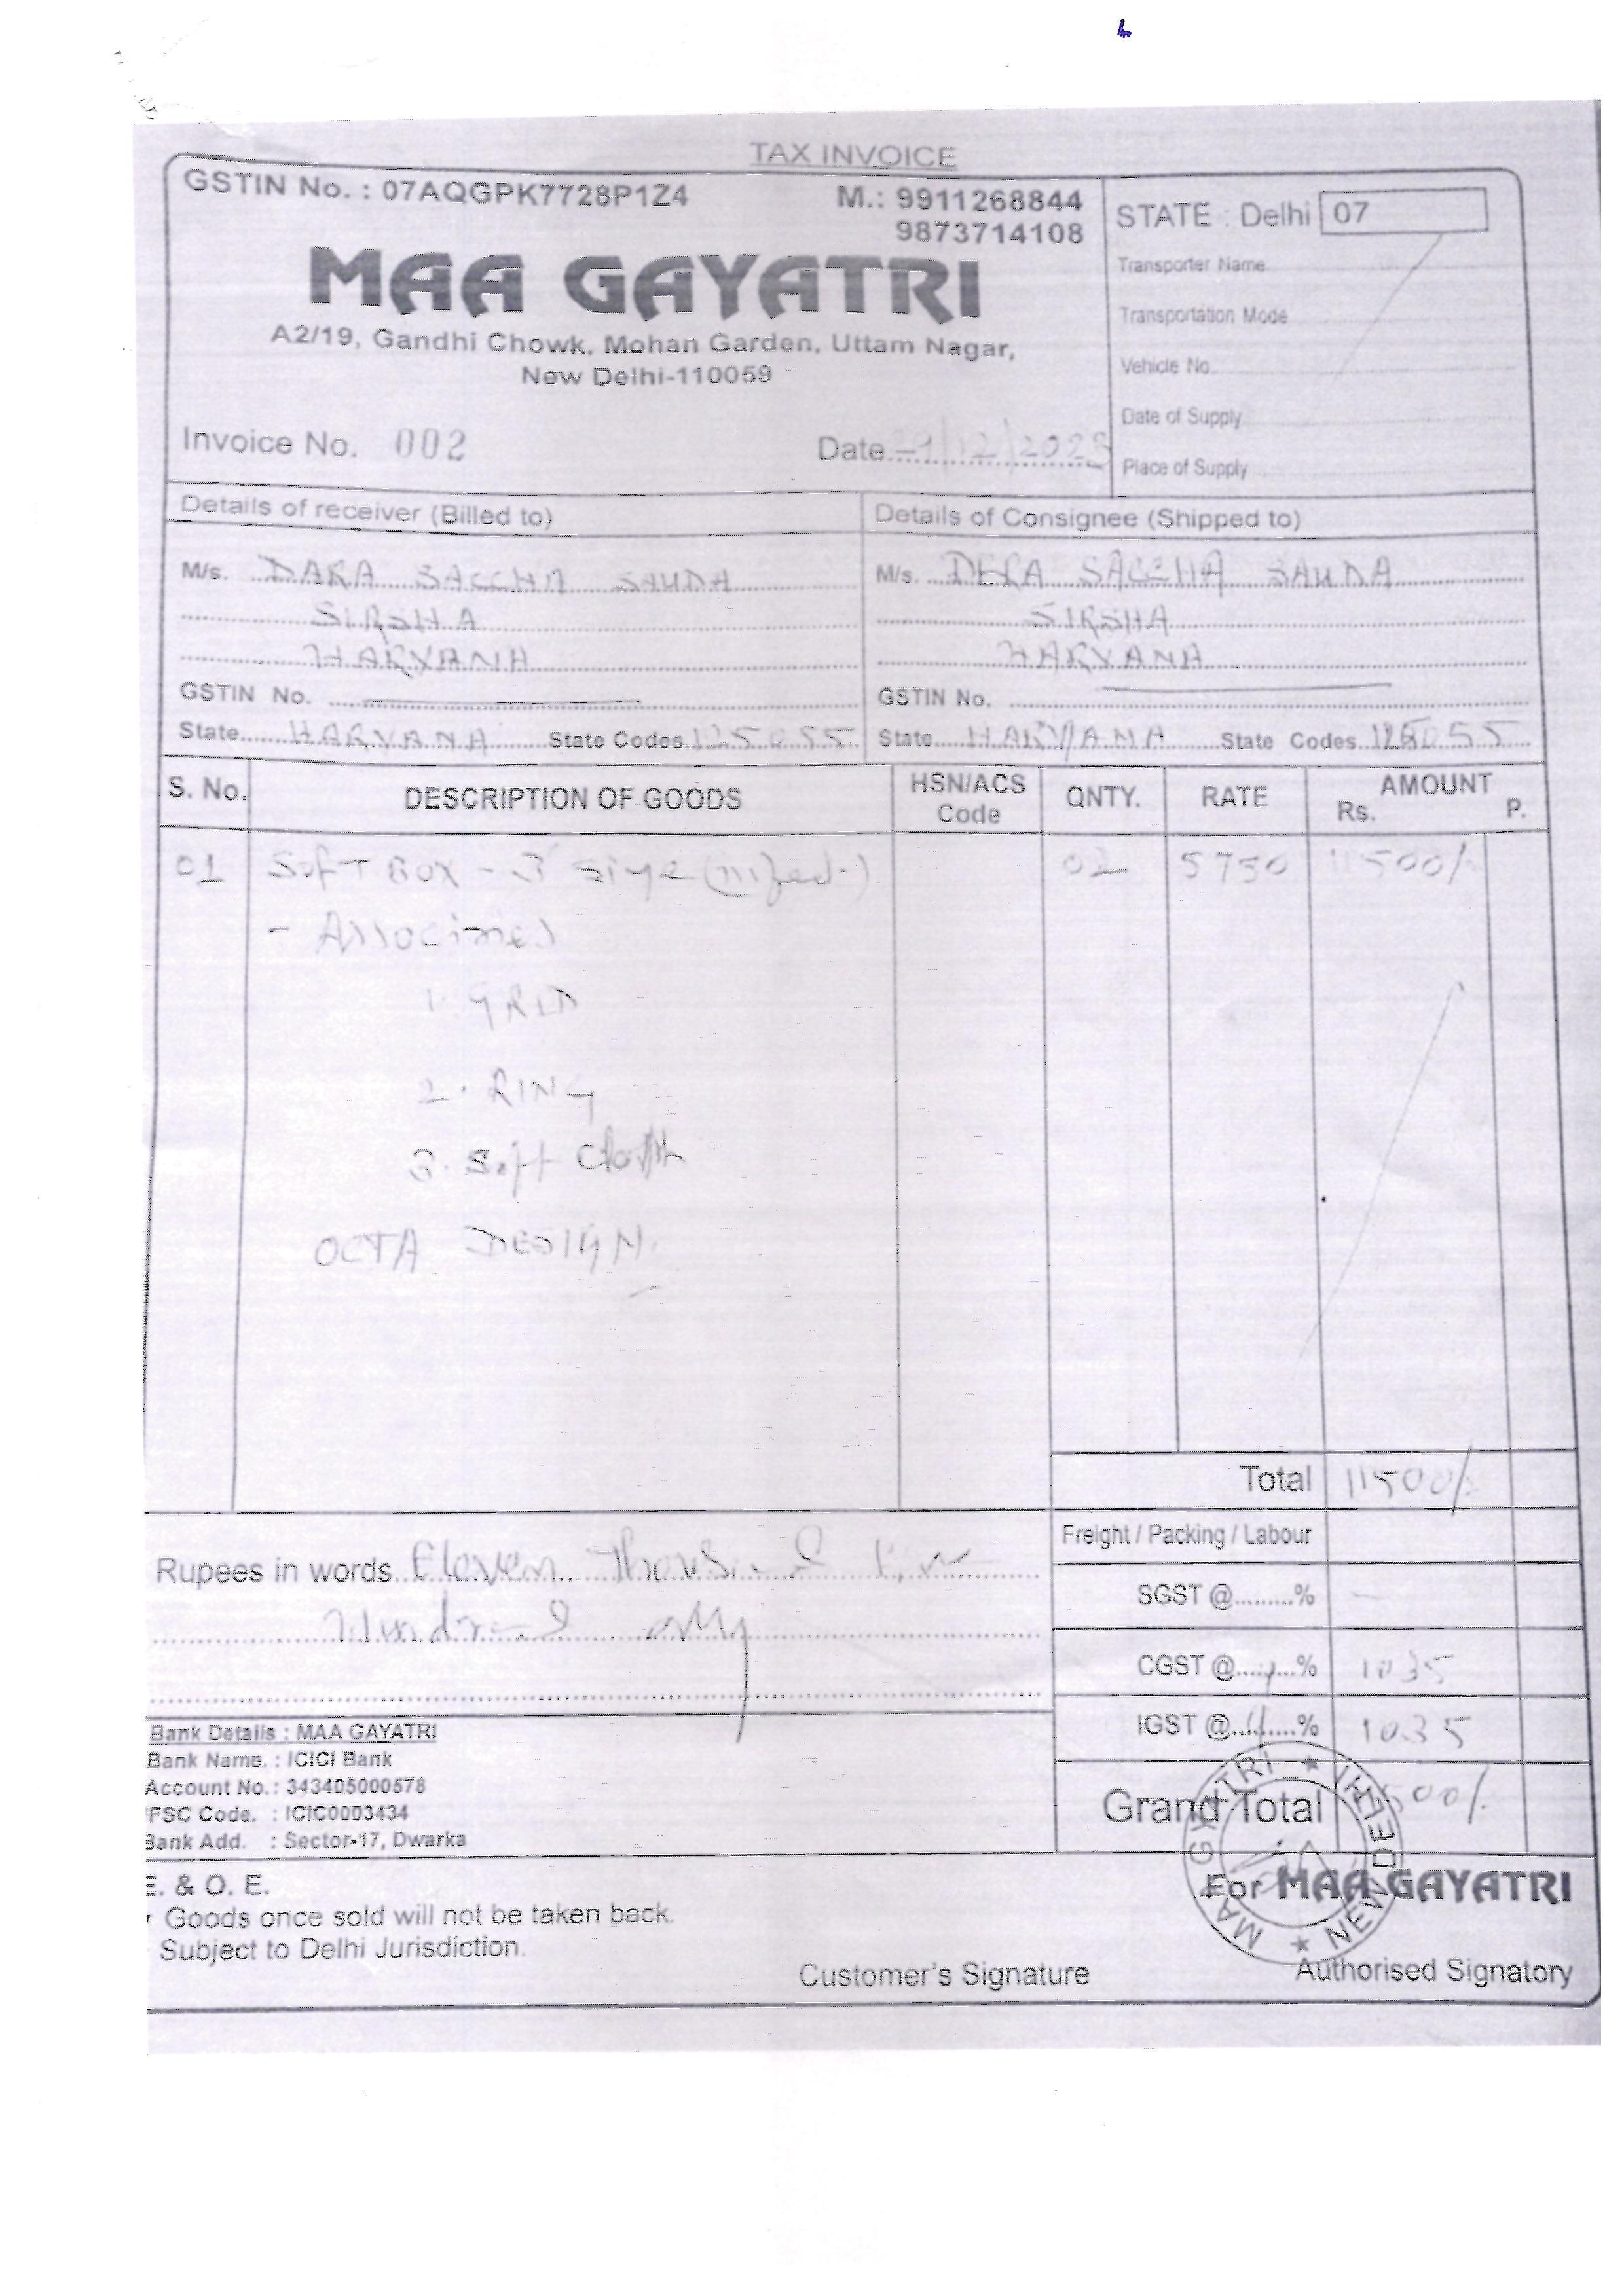 TAX INVOICE
GSTIN No. : 07AQGPK7728P1Z4
M.: 9911268844
9873714108
MAA GAYATRI
A2/19, Gandhi Chowk, Mohan Garden, Uttam Nagar,
New Delhi-110059
Invoice No. 002
Date
STATE : Delhi 07
Transporter Name
Transportation Mode
Vehicle No.
Date of Supply
Place of Supply
Details of receiver (Billed to)
M/s. DARA SACCHA SAUDA
SIRSHA
HARYANA
GSTIN No.
State HARYANA State Codes 125055
Details of Consignee (Shipped to)
M/s. DERA SACCHA SAUDA
SIRSHA
HARYANA
GSTIN No.
State HARYANA State Codes 125055
S. No. DESCRIPTION OF GOODS HSN/ACS Code QNTY. RATE AMOUNT Rs. P.
01 SOFT BOX - 3' 02 5750 11500/-
-
1. GRID
2. RING
3. Soft Cloth
OCTA DESIGN.
Total 11500/-
Freight / Packing / Labour
SGST @.........% —
CGST @ % 1035
IGST @ % 1035
Grand Total
Rupees in words Eleven Thousand five
Hundred only
Bank Details : MAA GAYATRI
Bank Name. : ICICI Bank
Account No. : 343405000578
FSC Code. : ICIC0003434
Bank Add. : Sector-17, Dwarka
E. & O. E.
Goods once sold will not be taken back.
Subject to Delhi Jurisdiction.
Customer's Signature
MAA GAYATRI ★ NEW DELHI ★
For MAA GAYATRI
Authorised Signatory